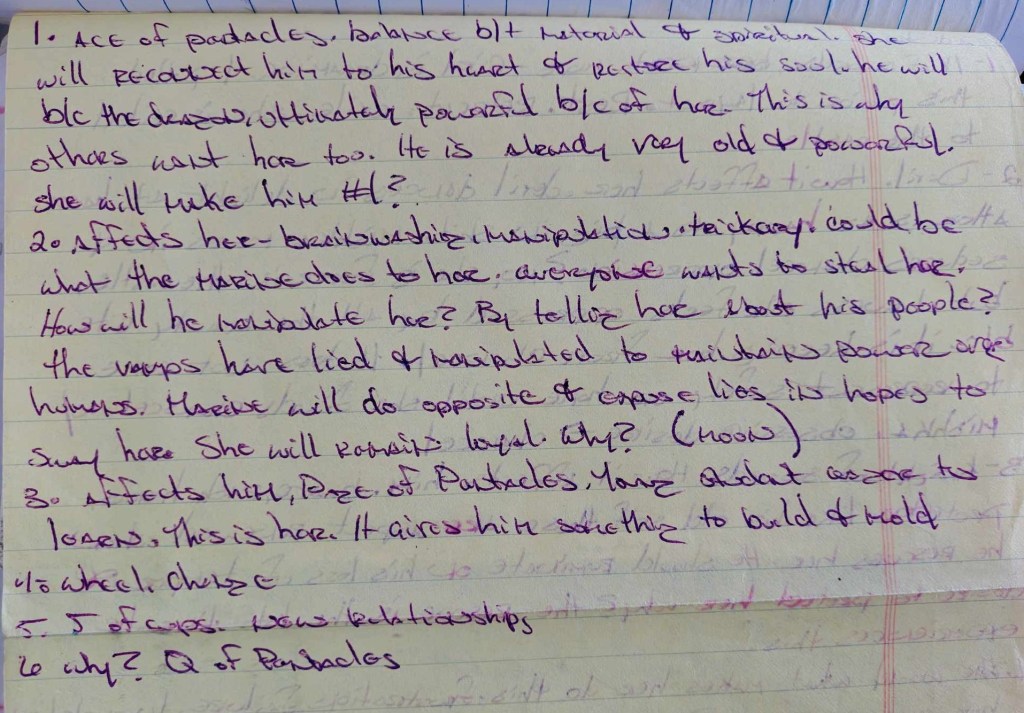 1. ACE of pentacles. balance b/t material & spiritual. she
will reconnect him to his heart & restore his soul. he will
b/c the ultimately powerful b/c of her. This is why
others want her too. He is already very old & powerful.
she will make him #1?
2. Affects her - brainwashing, manipulation, trickery. could be
what the marine does to her. everyone wants to steal her.
How will he manipulate her? By telling her about his people?
the vamps have lied & manipulated to maintain power over
humans. Marine will do opposite & expose lies in hopes to
sway her. She will remain loyal. why? (moon)
3. Affects him, Page of Pentacles. Young student eager to
learn. This is her. It gives him something to build & mold
4. wheel. change
5. 5 of cups. new relationships
6 why? Q of Pentacles